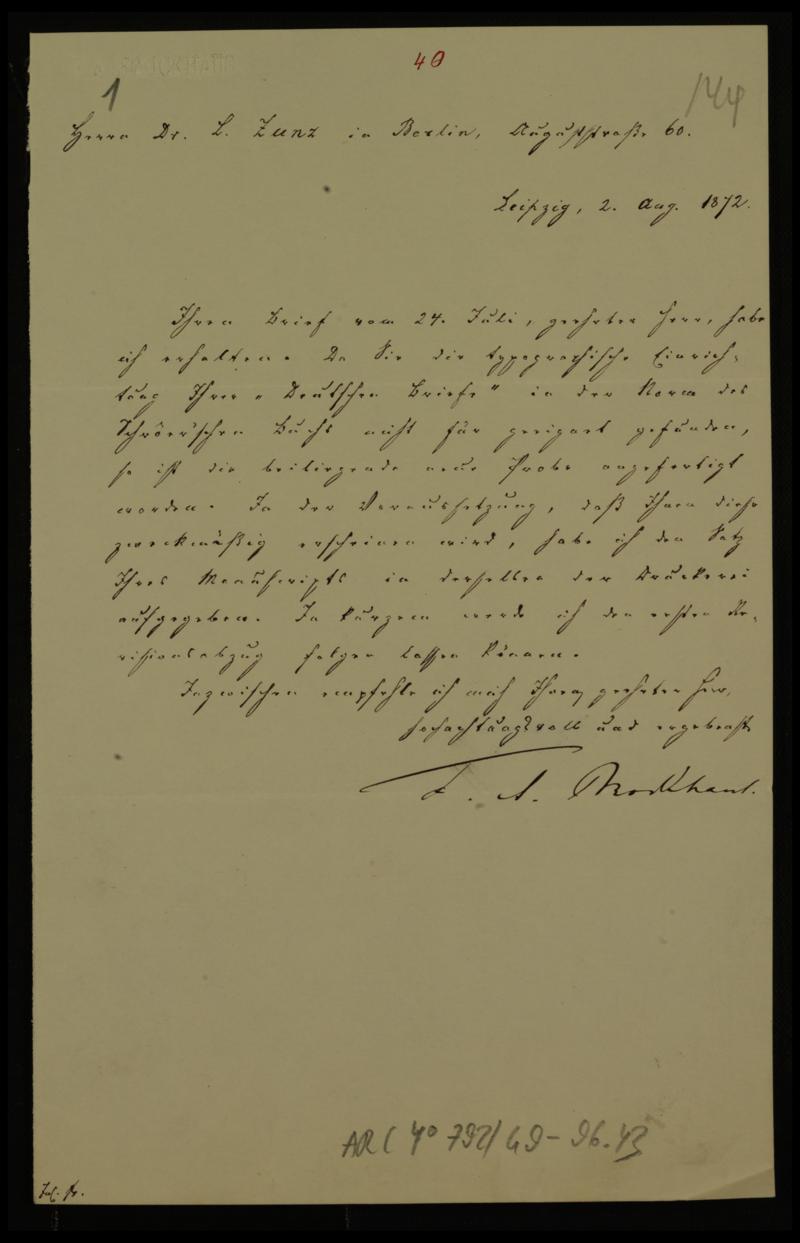 40
1
144
Herrn Dr. L. Zunz in Berlin, Auguststraße 60.
Leipzig, 2. Aug. 1872.
Ihren Brief vom 24. Juli, geehrter Herr, habe
ich erhalten. Da Sie die typographische Einrich-
tung Ihrer „Deutschen Briefe" in der Norm des
Schröer'schen Buchs nicht für geeignet gefunden,
so ist die beiliegende neue Probe angefertigt
worden. In der Voraussetzung, daß Ihnen diese
zweckmäßig erscheinen wird, habe ich den Satz
Ihres Manuscripts in derselben der Druckerei
aufgegeben. In kurzem werde ich den ersten Re-
visionsabzug folgen lassen können.
Inzwischen empfehle ich mich Ihnen, geehrter Herr,
hochachtungsvoll und ergebenst
F. A. Brockhaus.
ARC 4° 792/G9-96.43